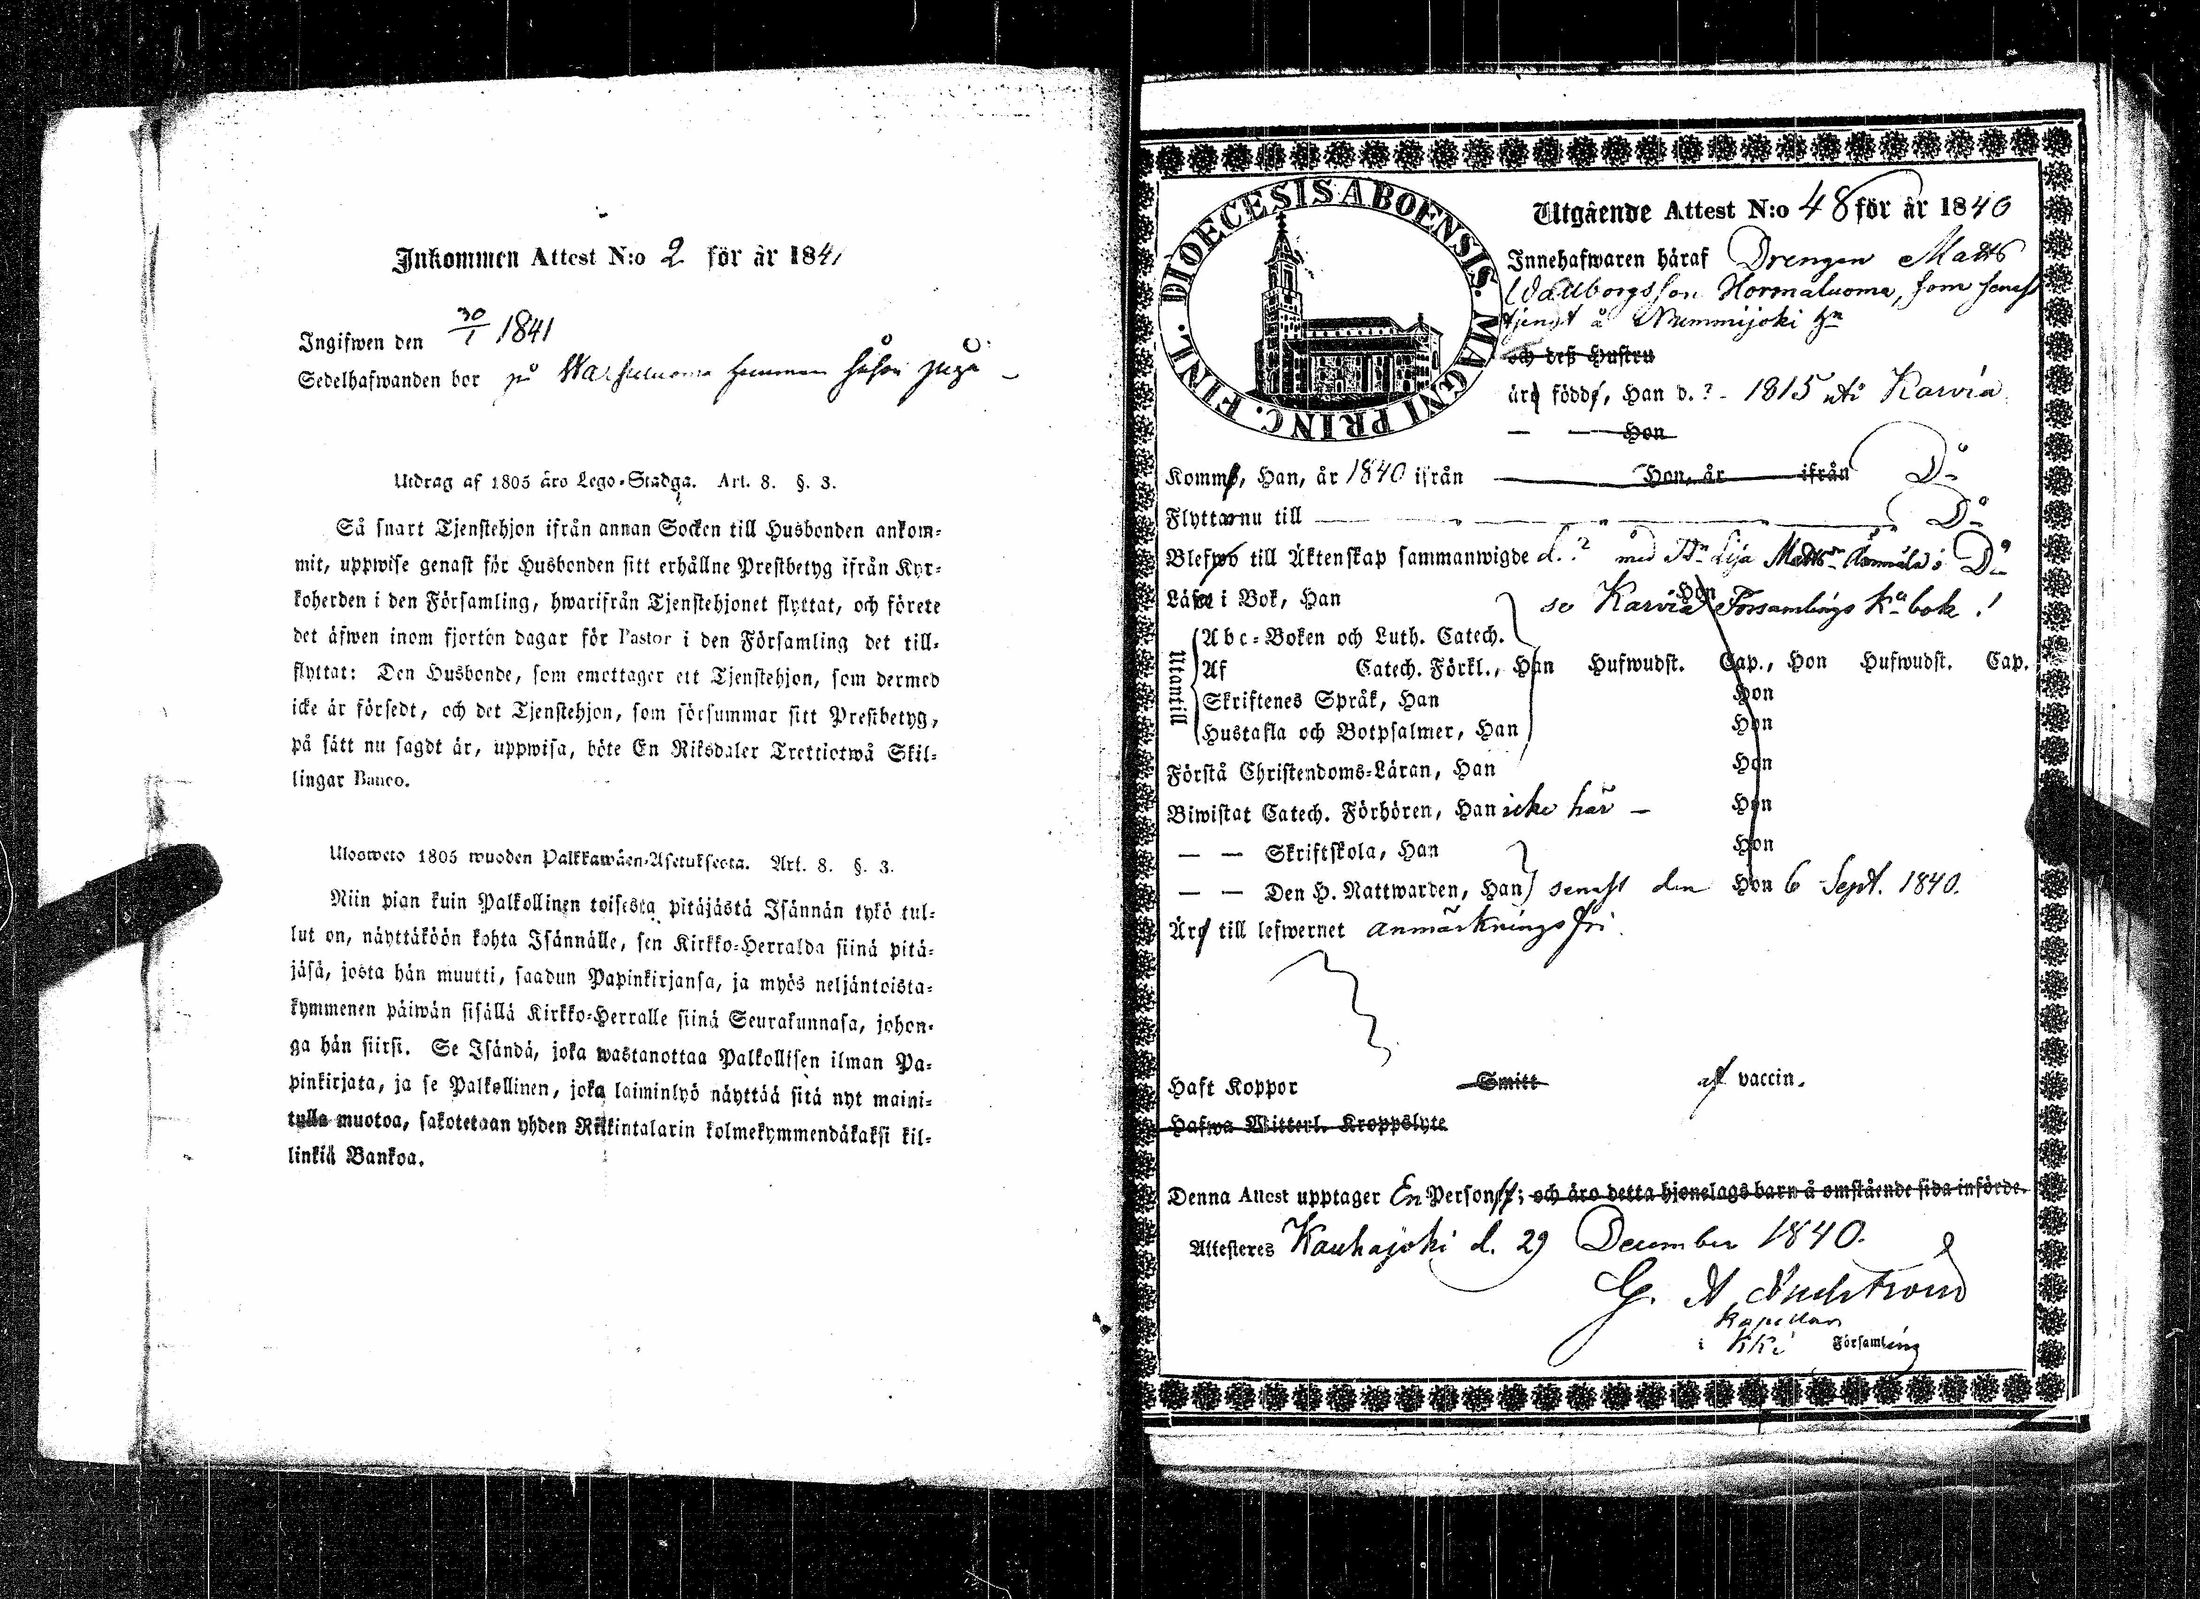 Inkommen Attest N:o 2 för år 1841
Ingifwen den 30/1 1841
Sedelhafwanden bor på
Utdrag af 1805 års Lego-Stadga. Art. 8. §. 3.
Så snart Tjenstehjon ifrån annan Socken till Husbonden ankom-
mit, uppwise genast för Husbonden sitt erhållne Prestbetyg ifrån Kyr-
koherden i den Församling, hwarifrån Tjenstehjonet flyttat, och förete
det äfwen inom fjorton dagar för Pastor i den Församling det till-
flyttat: Den Husbonde, som emottager ett Tjenstehjon, som dermed
icke är försedt, och det Tjenstehjon, som försummar sitt Prestbetyg,
på sätt nu sagdt är, uppwisa, böte En Riksdaler Trettiotwå Skil-
lingar Banco.
Ulosweto 1805 wuoden Palkkawäen-Asetuksesta. Art. 8. §. 3.
Niin pian kuin Palkollinen toisesta pitäjästä Isännän tykö tul-
lut on, näyttäköön kohta Isännälle, sen Kirkko-Herralda siinä pitä-
jäsä, josta hän muutti, saadun Papinkirjansa, ja myös neljäntoista-
kymmenen päiwän sisällä Kirkko-Herralle siinä Seurakunnasa, johon-
ga hän siirsi. Se Isändä, joka wastanottaa Palkollisen ilman Pa-
pinkirjata, ja se Palkollinen, joka laiminlyö näyttää sitä nyt maini-
tulla muotoa, sakotetaan yhden Riikintalarin kolmekymmendäkaksi kil-
linkiä Bankoa.
DIOECESIS ABOENSIS. MAGNI PRINC. FINL.
Utgående Attest N:o 48 för år 1840
Innehafwaren häraf Drengen Matts
Wallborgsson Hormaluoma, som senast
tjenst å Nummijoki hn
och deß Hustru
äro födde, Han d. ? 1815 uti Karvia
— — Hon
Kommo, Han, år 1840 ifrån Hon, år ifrån Do
Flytta nu till Do
Blefwo till Äktenskap sammanwigde d. ? med Lisa Matts i Do
Läsa i Bok, Han Hon se Karvia Församlings K bok!
Utantill
Abc-Boken och Luth. Catech.
Af Catech. Förkl., Han Hufwudst. Cap., Hon Hufwudst. Cap.
Skriftenes Språk, Han Hon
Hustafla och Botpsalmer, Han Hon
Förstå Christendoms-Läran, Han Hon
Biwistat Catech. Förhören, Han icke här — Hon
— — Skriftskola, Han Hon
— — Den H. Nattwarden, Han senast den Hon 6 Sept. 1840.
Äro till lefwernet anmärkningsfri.
Haft Koppor Smitt af vaccin.
Hafwa Witterl. Kroppslyte
Denna Attest upptager En Person; och äro detta hjonelags barn å omstående sida införde.
Attesteras Kauhajoki d. 29 December 1840.
G. A.
Kapellan
i Kki Församling